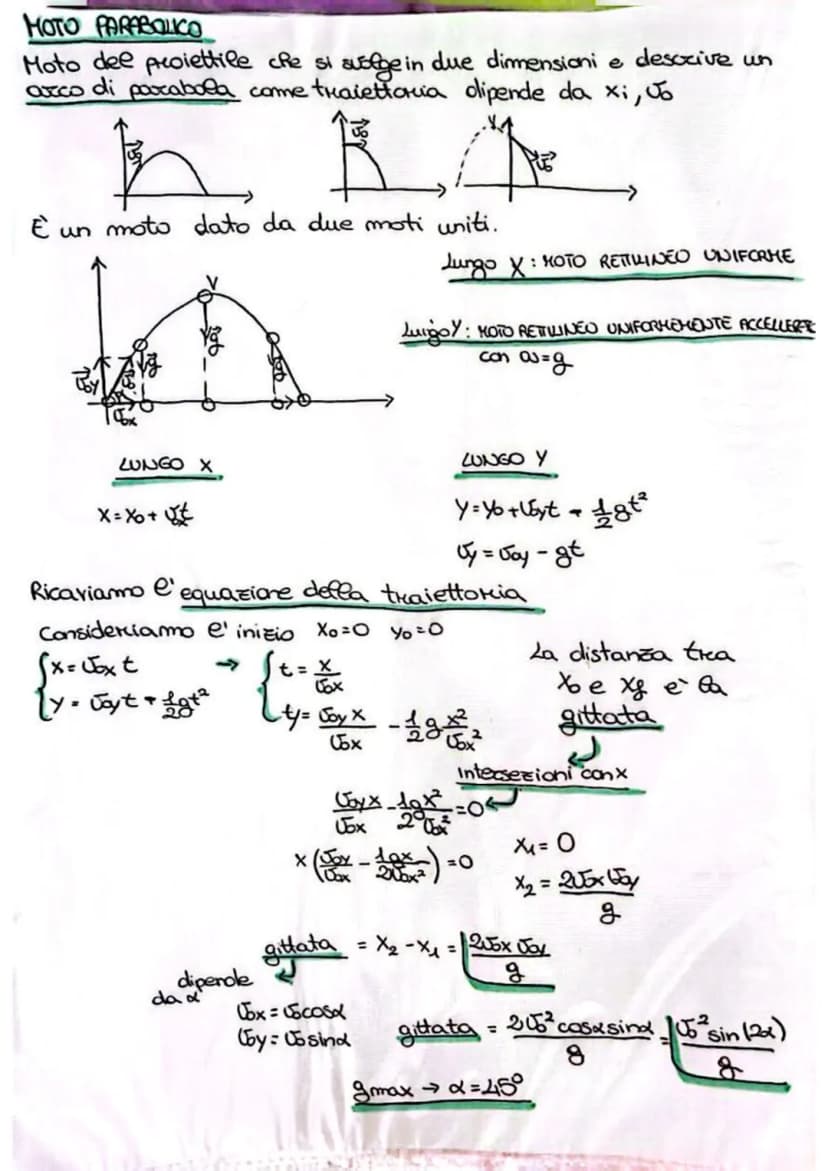 MOTO PARABOLICO
Moto del proiettile che si svolge in due dimensioni e descrive un
arco di parabola come traiettoria dipende da xi, v⃗0
v⃗0
v⃗0
V
v⃗0
È un moto dato da due moti uniti.
Lungo X: MOTO RETTILINEO UNIFORME
V
Lungo Y: MOTO RETTILINEO UNIFORMEMENTE ACCELLERATO
con a=g
g⃗
g⃗
g⃗
v⃗0y
v⃗0
v⃗0x
LUNGO X
LUNGO Y
X=X0+ v0xt
Y=Y0+v0yt - 1/2 gt²
vy = v0y - gt
Ricaviamo l'equazione della traiettoria
Consideriamo l'inizio X0=0 Y0=0
La distanza tra
X0 e Xf è la
gittata
{x= v0x t → {t = x/v0x
{y = v0yt - 1/2 gt² {y= v0y x/v0x - 1/2 g x²/v0x²
Intersezioni con x
v0y x/v0x - 1/2 g x²/v0x² =0
x (v0y/v0x - 1gx/2v0x²) =0
X1 = 0
X2 = 2v0x v0y/g
gittata = X2 - X1 = 2v0x v0y/g
dipende
da α
v0x = v0cosα
v0y = v0 sinα
gittata = 2v0² cosα sinα/g = v0² sin(2α)/g
gmax → α =45°